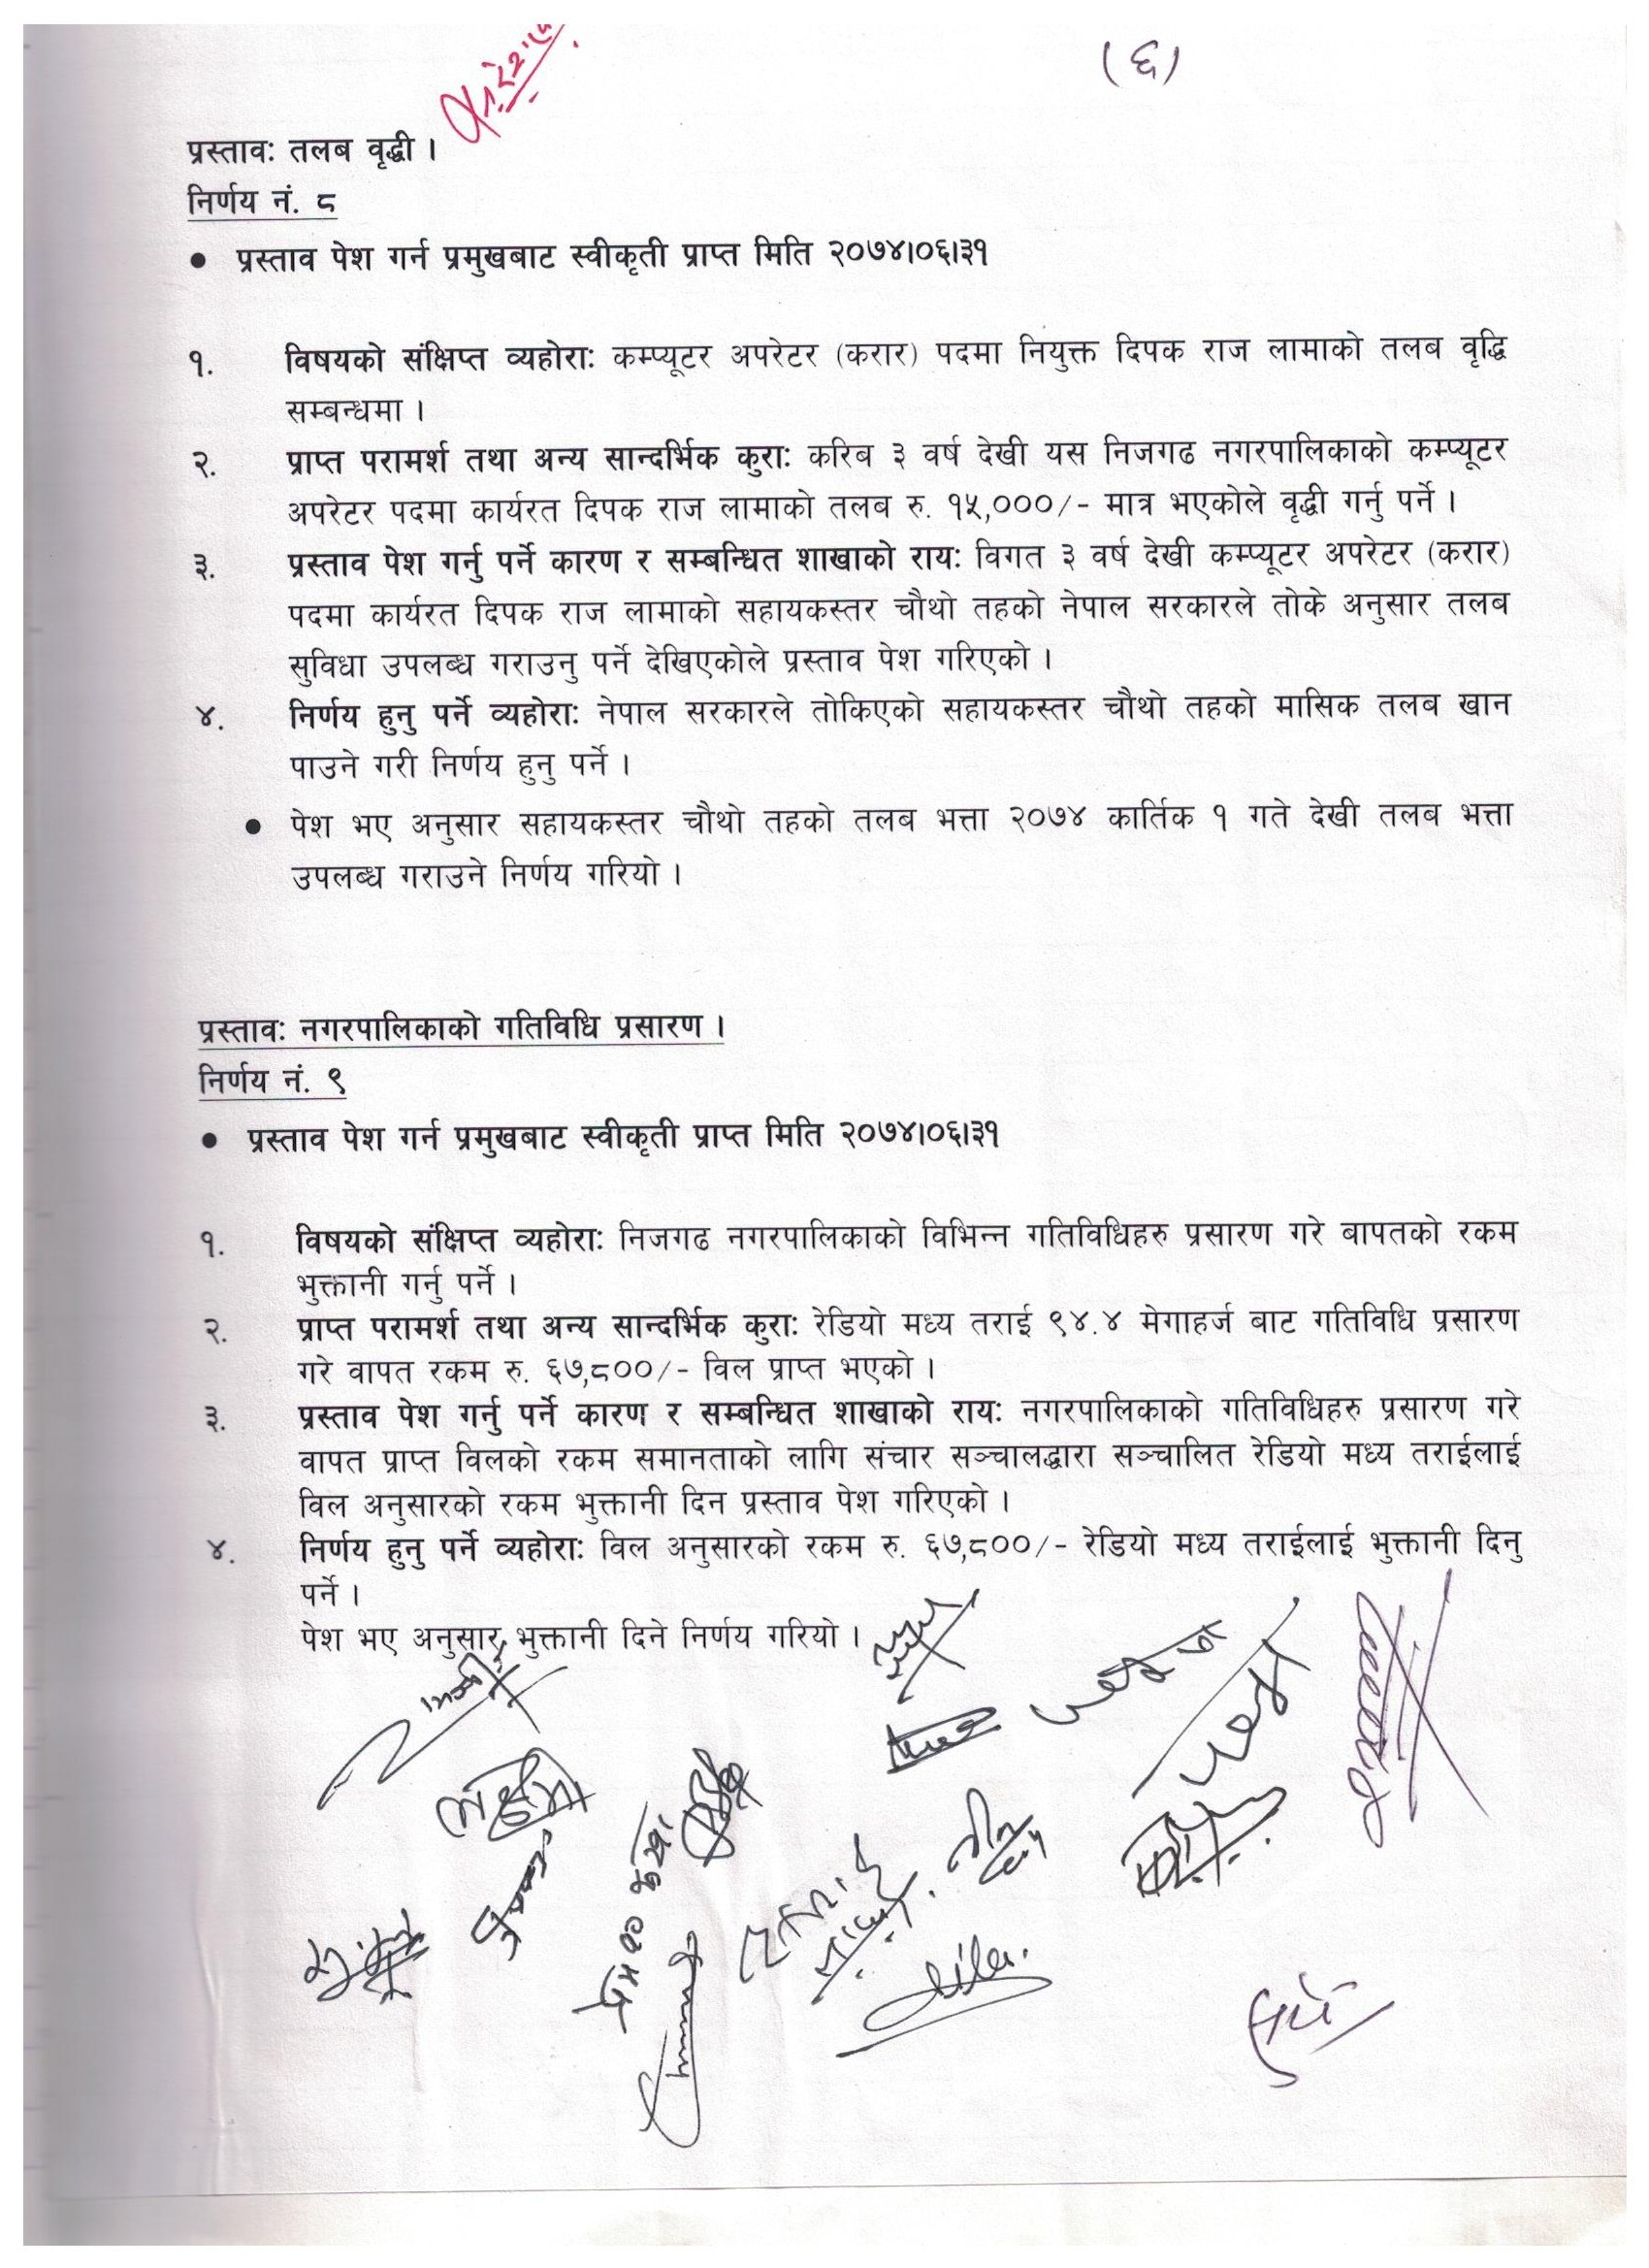 (६)
प्रस्तावः तलब वृद्धी ।
निर्णय नं. ८
● प्रस्ताव पेश गर्न प्रमुखबाट स्वीकृती प्राप्त मिति २०७४।०६।३१
१. विषयको संक्षिप्त व्यहोराः कम्प्यूटर अपरेटर (करार) पदमा नियुक्त दिपक राज लामाको तलब वृद्धि
सम्बन्धमा ।
२. प्राप्त परामर्श तथा अन्य सान्दर्भिक कुराः करिब ३ वर्ष देखी यस निजगढ नगरपालिकाको कम्प्यूटर
अपरेटर पदमा कार्यरत दिपक राज लामाको तलब रु. १५,०००/- मात्र भएकोले वृद्धी गर्नु पर्ने ।
३. प्रस्ताव पेश गर्नु पर्ने कारण र सम्बन्धित शाखाको रायः विगत ३ वर्ष देखी कम्प्यूटर अपरेटर (करार)
पदमा कार्यरत दिपक राज लामाको सहायकस्तर चौथो तहको नेपाल सरकारले तोके अनुसार तलब
सुविधा उपलब्ध गराउनु पर्ने देखिएकोले प्रस्ताव पेश गरिएको ।
४. निर्णय हुनु पर्ने व्यहोराः नेपाल सरकारले तोकिएको सहायकस्तर चौथो तहको मासिक तलब खान
पाउने गरी निर्णय हुनु पर्ने ।
● पेश भए अनुसार सहायकस्तर चौथो तहको तलब भत्ता २०७४ कार्तिक १ गते देखी तलब भत्ता
उपलब्ध गराउने निर्णय गरियो ।
प्रस्तावः नगरपालिकाको गतिविधि प्रसारण ।
निर्णय नं. ९
● प्रस्ताव पेश गर्न प्रमुखबाट स्वीकृती प्राप्त मिति २०७४।०६।३१
१. विषयको संक्षिप्त व्यहोराः निजगढ नगरपालिकाको विभिन्न गतिविधिहरु प्रसारण गरे बापतको रकम
भुक्तानी गर्नु पर्ने ।
२. प्राप्त परामर्श तथा अन्य सान्दर्भिक कुराः रेडियो मध्य तराई ९४.४ मेगाहर्ज बाट गतिविधि प्रसारण
गरे वापत रकम रु. ६७,८००/- विल प्राप्त भएको ।
३. प्रस्ताव पेश गर्नु पर्ने कारण र सम्बन्धित शाखाको रायः नगरपालिकाको गतिविधिहरु प्रसारण गरे
वापत प्राप्त विलको रकम समानताको लागि संचार सञ्चालद्धारा सञ्चालित रेडियो मध्य तराईलाई
विल अनुसारको रकम भुक्तानी दिन प्रस्ताव पेश गरिएको ।
४. निर्णय हुनु पर्ने व्यहोराः विल अनुसारको रकम रु. ६७,८००/- रेडियो मध्य तराईलाई भुक्तानी दिनु
पर्ने ।
पेश भए अनुसार भुक्तानी दिने निर्णय गरियो ।